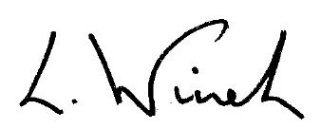 L. Winch